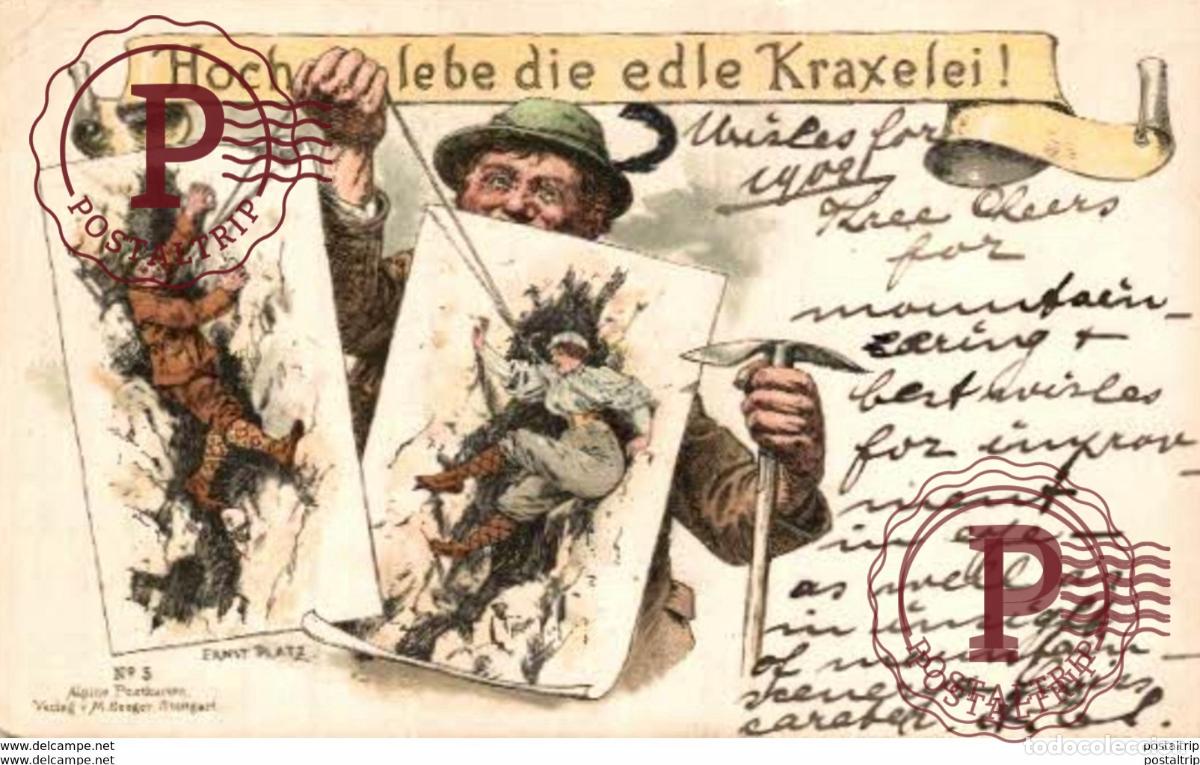 Hoch lebe die edle Kraxelei!
Wishes for
1902
Three Cheers
for
mountain-
eering +
best wishes
for improv
ment
in
as well as
in insight
of mountain-
scenery
ERNST PLATZ
No 3
Alpine Postkarten
Verlag v. M. Seeger. Stuttgart
P
POSTALTRIP
P
POSTALTRIP
todocoleccion
www.delcampe.net
www.delcampe.net
postaltrip
postaltrip